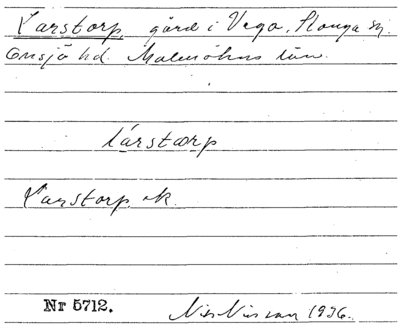 Larstorp, gård i Vega, Slonga sn.
Onsjö hd. Malmöhus län.
lárstorp
Larstorp. ek.
Nr 5712.
Nils Nilsson 1936.